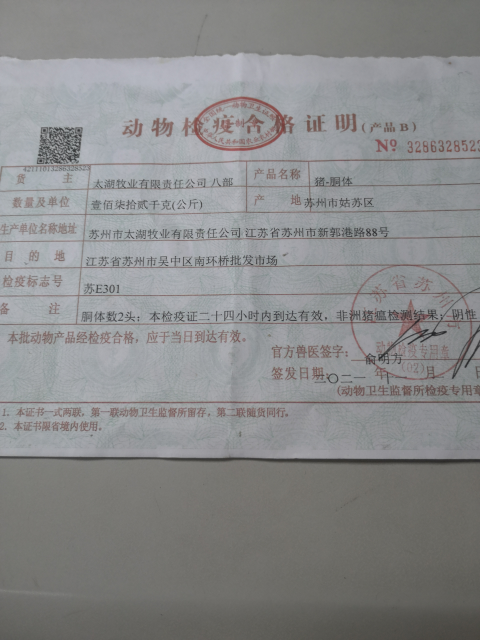 动物检疫合格证明(产品B)
№ 3286328523
42111013286328523
货 主 太湖牧业有限责任公司 八部 产品名称 猪-胴体
数量及单位 壹佰柒拾贰千克(公斤) 产 地 苏州市姑苏区
生产单位名称地址 苏州市太湖牧业有限责任公司 江苏省苏州市新郭港路88号
目 的 地 江苏省苏州市吴中区南环桥批发市场
检疫标志号 苏E301
备 注 胴体数2头；本检疫证二十四小时内到达有效，非洲猪瘟检测结果：阴性
本批动物产品经检疫合格，应于当日到达有效。
官方兽医签字： 俞明方
签发日期： 二〇二一年 月 日
(动物卫生监督所检疫专用章
1. 本证书一式两联，第一联动物卫生监督所留存，第二联随货同行。
2. 本证书限省境内使用。